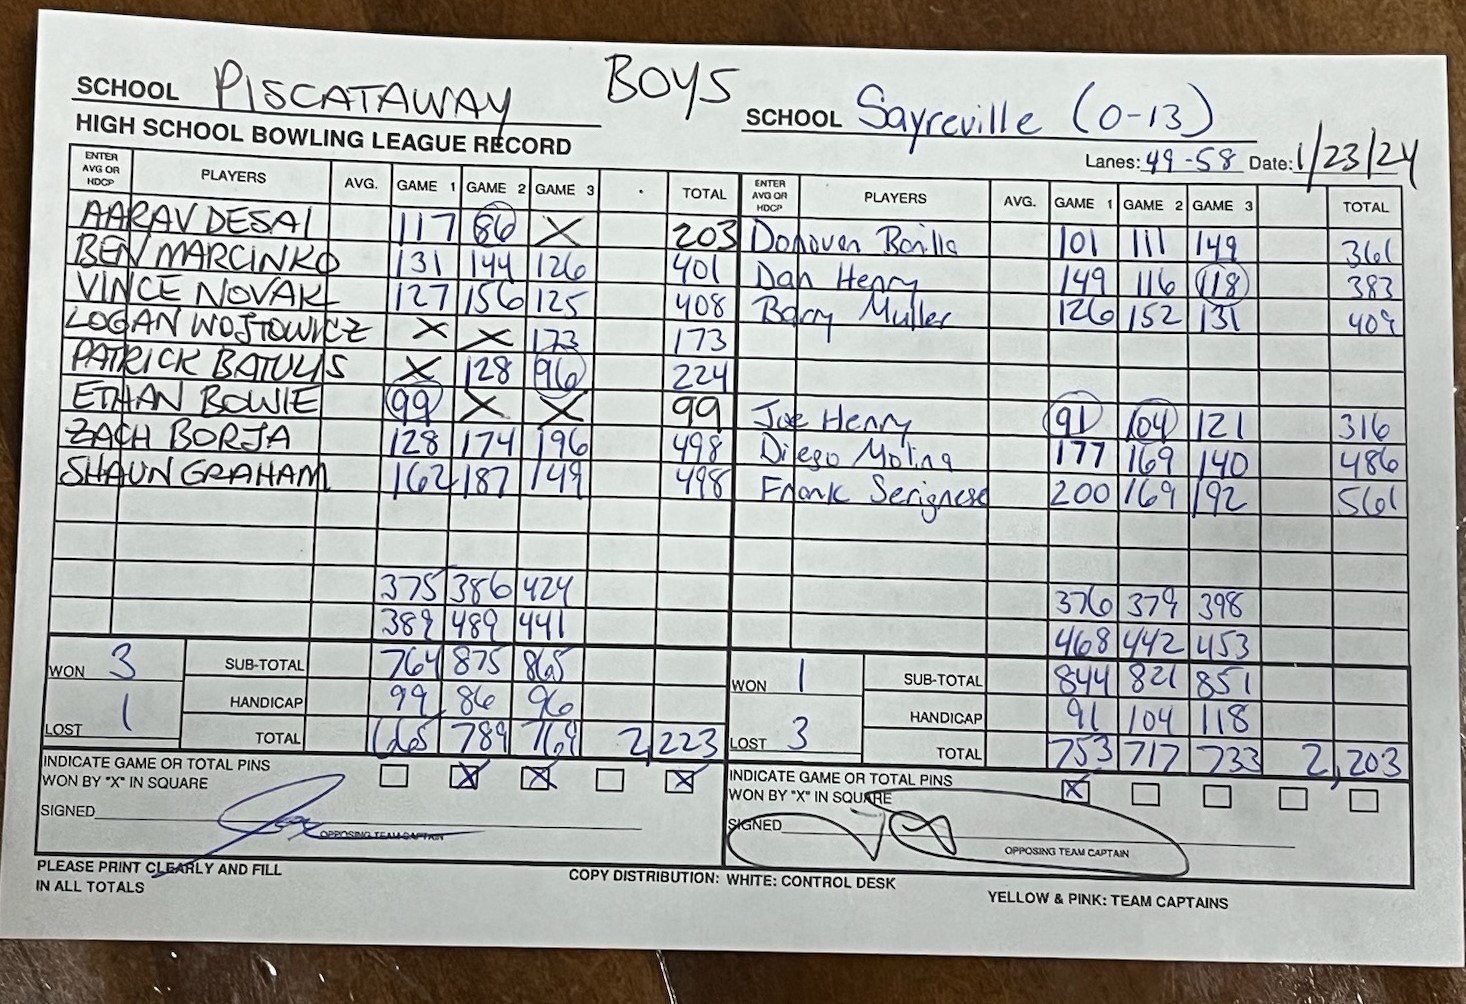 SCHOOL PISCATAWAY BOYS SCHOOL Sayreville (0-13)
HIGH SCHOOL BOWLING LEAGUE RECORD Lanes: 49-58 Date: 1/23/24
ENTER AVG OR HDCP PLAYERS AVG. GAME 1 GAME 2 GAME 3 TOTAL ENTER AVG OR HDCP PLAYERS AVG. GAME 1 GAME 2 GAME 3 TOTAL
AARAV DESAI 117 86 X 203 Donovan Borilla 101 111 149 361
BEN MARCINKO 131 144 126 401 Dan Henry 149 116 118 383
VINCE NOVAK 127 156 125 408 Barry Muller 126 152 131 409
LOGAN WOJTOWICZ X X 173 173
PATRICK BATULIS X 128 96 224
ETHAN BOWIE 99 X X 99 Joe Henry 91 104 121 316
ZACH BORJA 128 174 196 498 Diego Molina 177 169 140 486
SHAUN GRAHAM 162 187 149 498 Frank Serignese 200 169 192 561
375 386 424 376 379 398
389 489 441 468 442 453
WON 3 SUB-TOTAL 764 875 865 WON 1 SUB-TOTAL 844 821 851
LOST 1 HANDICAP 99 86 96 LOST 3 HANDICAP 91 104 118
TOTAL 665 789 769 2,223 TOTAL 753 717 733 2,203
INDICATE GAME OR TOTAL PINS X X X INDICATE GAME OR TOTAL PINS X
WON BY "X" IN SQUARE WON BY "X" IN SQUARE
SIGNED SIGNED
OPPOSING TEAM CAPTAIN OPPOSING TEAM CAPTAIN
PLEASE PRINT CLEARLY AND FILL COPY DISTRIBUTION: WHITE: CONTROL DESK YELLOW & PINK: TEAM CAPTAINS
IN ALL TOTALS